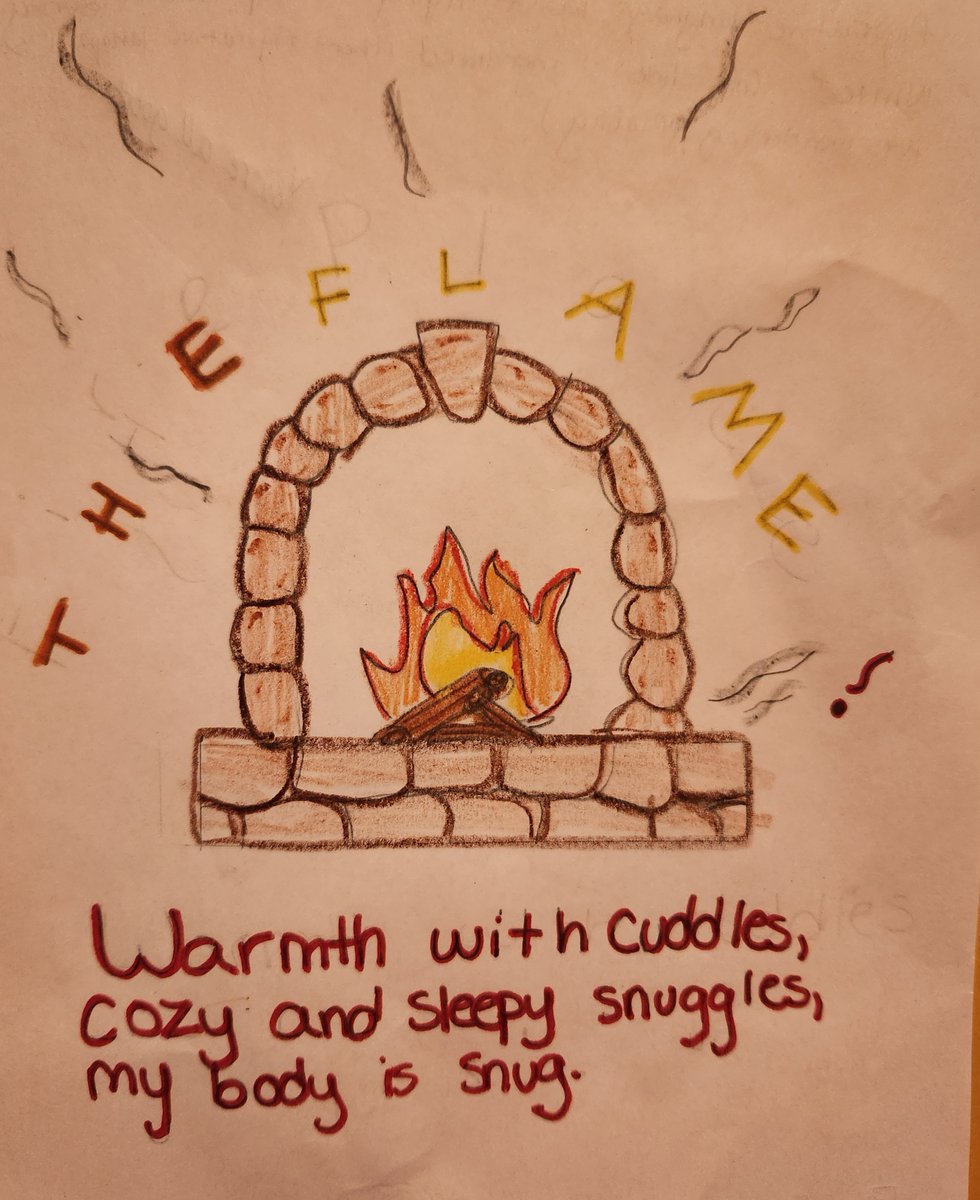 THE FLAME
Warmth with cuddles,
cozy and sleepy snuggles,
my body is snug.